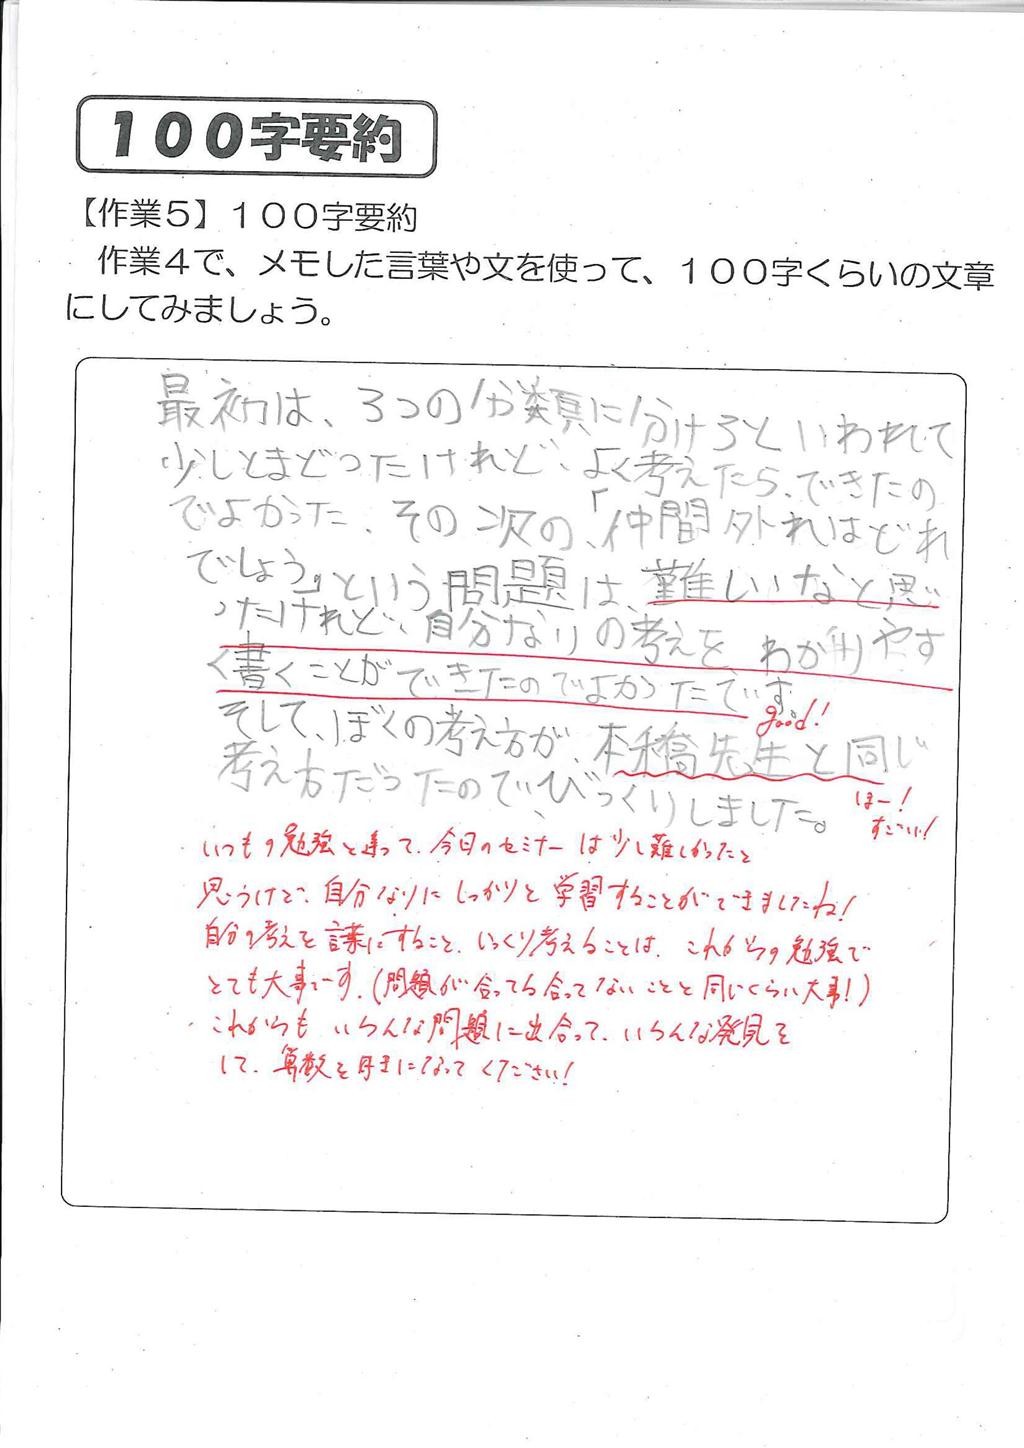 100字要約
【作業5】100字要約
作業4で、メモした言葉や文を使って、100字くらいの文章
にしてみましょう。
最初は、3つの分類に分けろといわれて
少しとまどったけれど、よく考えたら、できたの
でよかった、その次の、「仲間外れはどれ
でしょう」という問題は、難しいなと思
ったけれど、自分なりの考えを、わかりやす
く書くことができたのでよかったです。
good!
そして、ぼくの考え方が、本橋先生と同じ
考え方だったので、びっくりしました。
ほー!
すごい!
いつもの勉強と違って、今日のセミナーは少し難しかったと
思うけど、自分なりにしっかりと学習することができましたね!
自分の考えを言葉にすること、じっくり考えることは、これからの勉強で
とても大事です。(問題が合ってる合ってないことと同じくらい大事!)
これからも いろんな問題に出合って、いろんな発見を
して、算数を好きになってください!